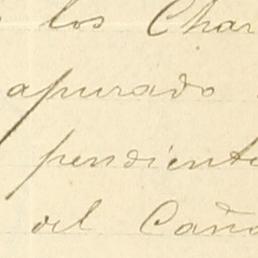 los Char
apurado
pendiente
del Caña